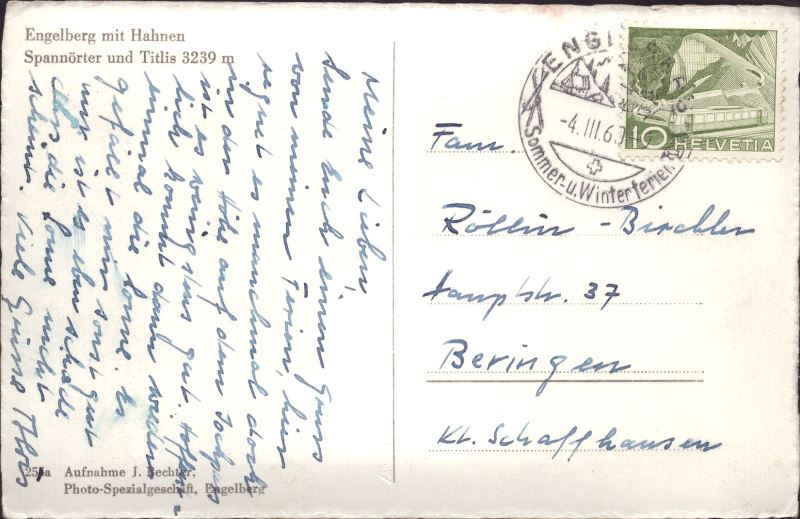 Engelberg mit Hahnen
Spannörter und Titlis 3239 m
Meine Lieben,
Sende Euch einen Gruss
von meinen Ferien, hier
regnet es manchmal doch
in der Höhe auf dem Jochpass
ist es wenigstens gut. Hoffent-
lich kommt dann wieder
einmal die Sonne. Es
gefällt mir sonst gut
nur ist es eben schade
dass die Sonne nicht
scheint. Viele Grüsse Alois
255a Aufnahme J. Bechter,
Photo-Spezialgeschäft, Engelberg
ENGELBERG
-4.III.6
Sommer- u. Winterferien
10 HELVETIA
Fam.
Röllin - Birchler
Hauptstr. 37
Beringen
Kt. Schaffhausen